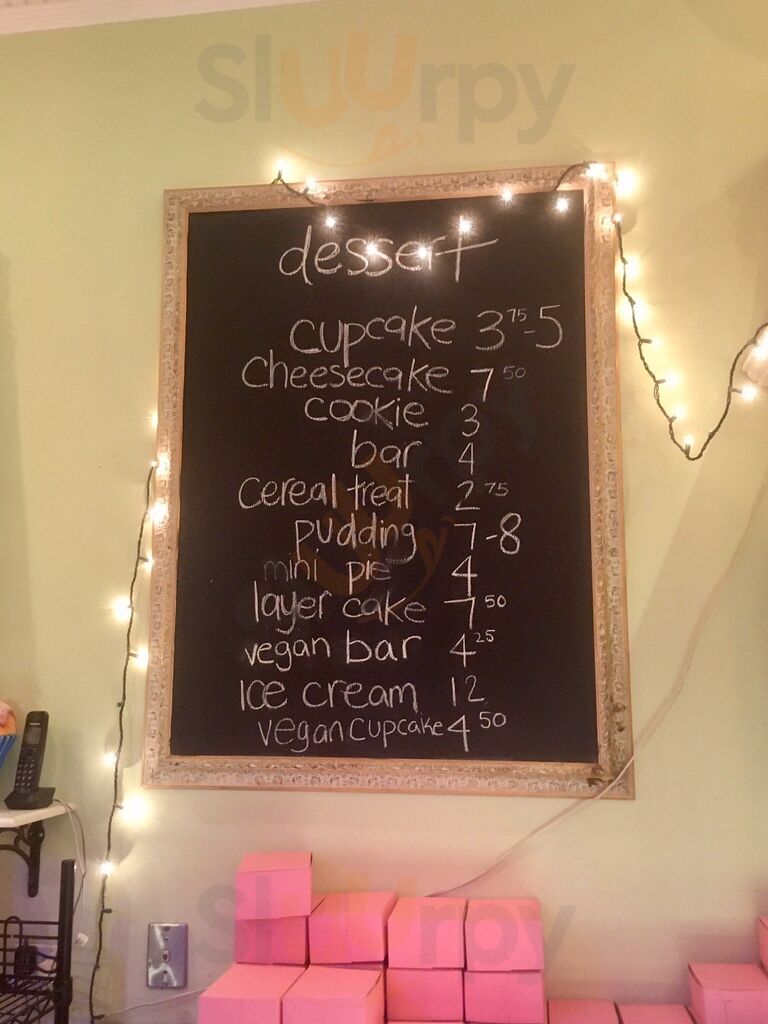 Sluurpy
dessert
cupcake 3.75-5
cheesecake 7.50
cookie 3
bar 4
cereal treat 2.75
pudding 7-8
mini pie 4
layer cake 7.50
vegan bar 4.25
ice cream 12
vegan cupcake 4.50
Sluurpy